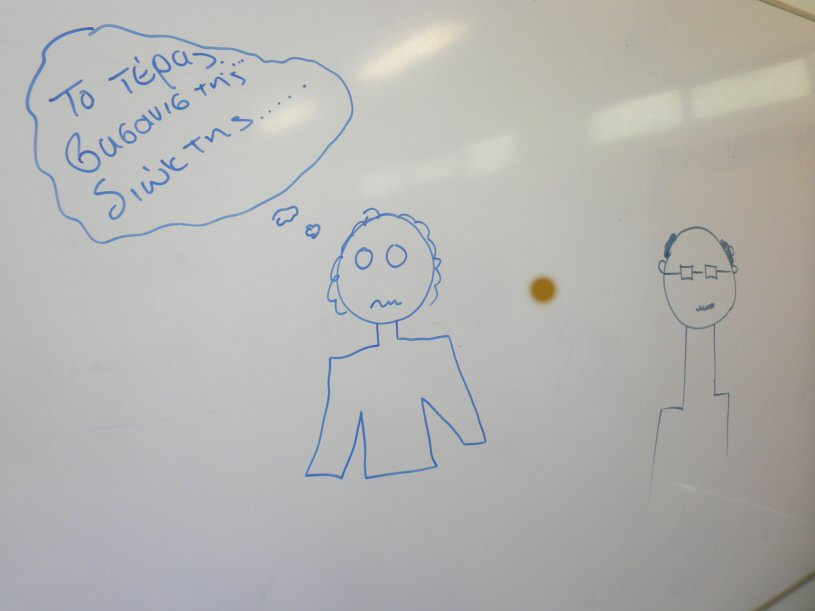 Το τέρας....
βασανιστής
διώκτης.....